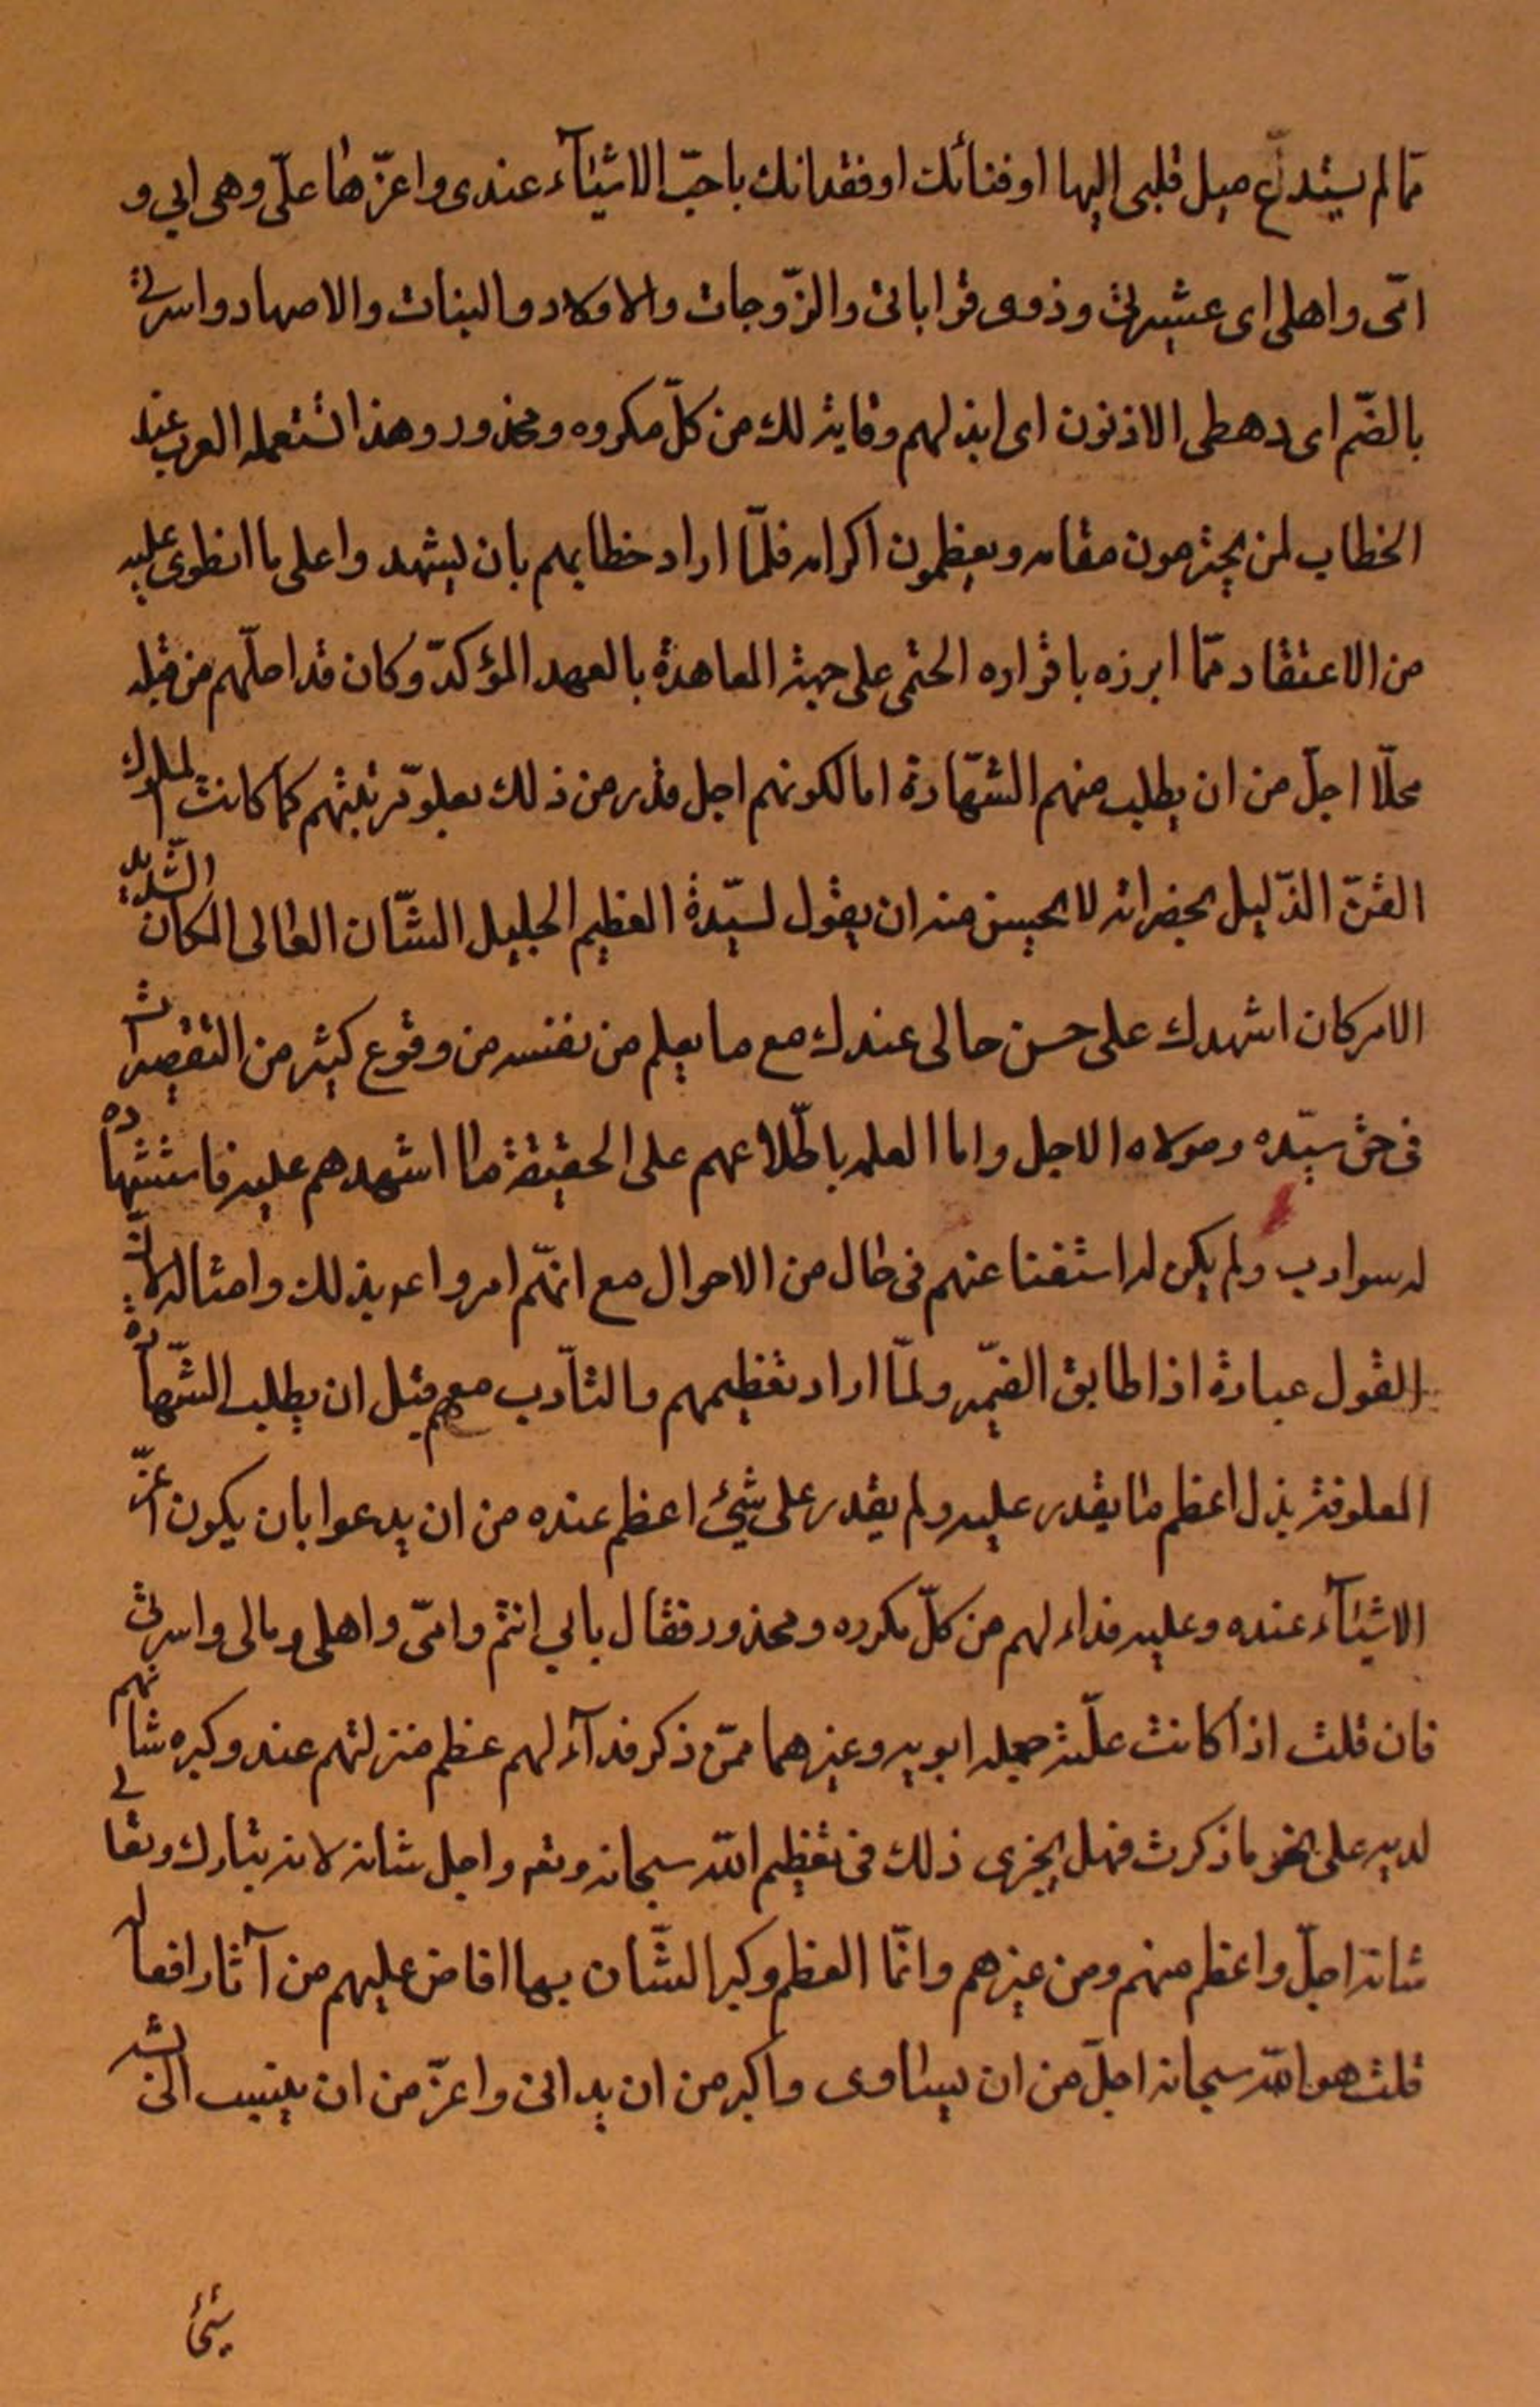 مما لم يستدع ميل قلبى اليها او فنائك او فقدانك باحبّ الاشيآء عندى واعزّها علىّ وهى ابي و
امّى واهلى اى عشيرتى وذوى قراباتى والزّوجات والاولاد والبنات والاصهار واسرتى
بالضّم اى رهطى الادنون اى ابذلهم وقاية لك من كلّ مكروه ومحذور وهذا تستعمله العرب عند
الخطاب لمن يحترمون مقامه ويعظمون اكرامه فلمّا اراد خطابهم بان يشهدوا على ما انطوى عليه
من الاعتقاد ممّا ابرزه باقراره الحتمى على جهة المعاهدة بالعهد المؤكدّ وكان قد احلّهم من قبله
محلّا اجلّ من ان يطلب منهم الشّهادة اما لكونهم اجل قدر من ذلك بعلوّ رتبتهم كما كانت لملوك
القنّ الذّليل بحضراته لا يحسن منه ان يقول لسيّدة العظيم الجليل الشّان العالى المكان الشّديد
الاركان اشهدك على حسن حالى عندك مع ما يعلم من نفسه من وقوع كثير من التقصيرات
فى حق سيّده ومولاه الاجل واما العلمه باطّلاعهم على الحقيقة ما اشهدهم عليه فاستشهاده
له سوادب ولم يكن له استغنا عنهم فى حال من الاحوال مع انهّم امروا عه بذلك وامثاله لانّ
القول عبادة اذا طابق الضّمير ولمّا اراد تعظيمهم والتأدّب معهم قبل ان يطلب الشّهادة
المعلوفة بذل اعظم ما يقدر عليه ولم يقدر على شيئ اعظم عنده من ان يدعوا بان يكون اعزّ
الاشيآء عنده وعليه فداء لهم من كلّ مكروه ومحذور فقال بابي انتم وامّى واهلى ومالى واسرتى
فان قلت اذا كانت علّة جعله ابويه وغيرهما ممّن ذكر فدآء لهم عظم منزلتهم عنده وكبره شانهم
لديه على نحو ما ذكرت فهل يجزى ذلك فى تعظيم اللّه سبحانه وتعه واجل شانه لانه تبارك وتعالى
شانه اجلّ واعظم منهم ومن غيرهم وانّما العظم وكبر الشّان بهما افاض عليهم من آثار افعاله
قلت هو اللّه سبحانه اجلّ من ان يساوى واكبر من ان يدانى واعزّ من ان ينسب اليه
شيئ